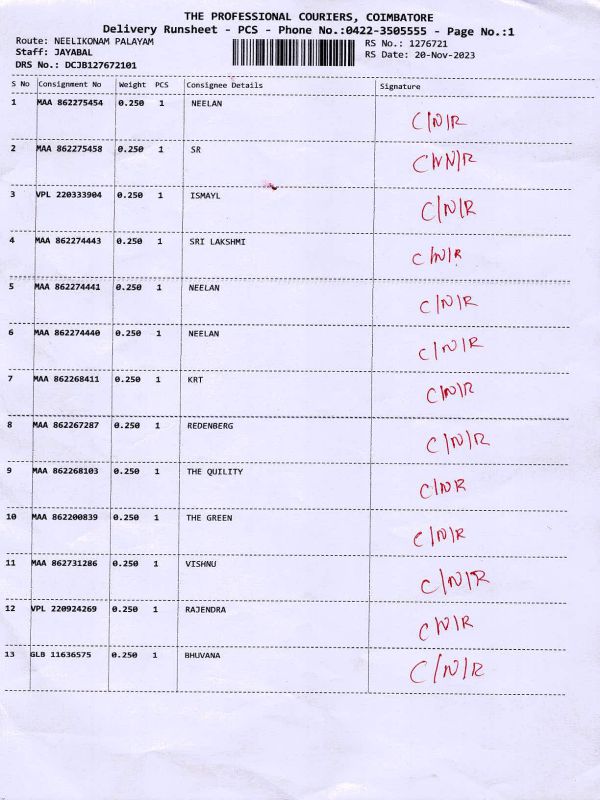 THE PROFESSIONAL COURIERS, COIMBATORE
Delivery Runsheet - PCS - Phone No.:0422-3505555 - Page No.:1
Route: NEELIKONAM PALAYAM RS No.: 1276721
Staff: JAYABAL RS Date: 20-Nov-2023
DRS No.: DCJB127672101
S No Consignment No Weight PCS Consignee Details Signature
1 MAA 862275454 0.250 1 NEELAN C/N/R
2 MAA 862275458 0.250 1 SR C/NN/R
3 VPL 220333904 0.250 1 ISMAYL C/N/R
4 MAA 862274443 0.250 1 SRI LAKSHMI C/N/R
5 MAA 862274441 0.250 1 NEELAN C/N/R
6 MAA 862274440 0.250 1 NEELAN C/N/R
7 MAA 862268411 0.250 1 KRT C/N/R
8 MAA 862267287 0.250 1 REDENBERG C/N/R
9 MAA 862268103 0.250 1 THE QUILITY C/NR
10 MAA 862200839 0.250 1 THE GREEN C/N/R
11 MAA 862731286 0.250 1 VISHNU C/N/R
12 VPL 220924269 0.250 1 RAJENDRA C/N/R
13 GLB 11636575 0.250 1 BHUVANA C/N/R